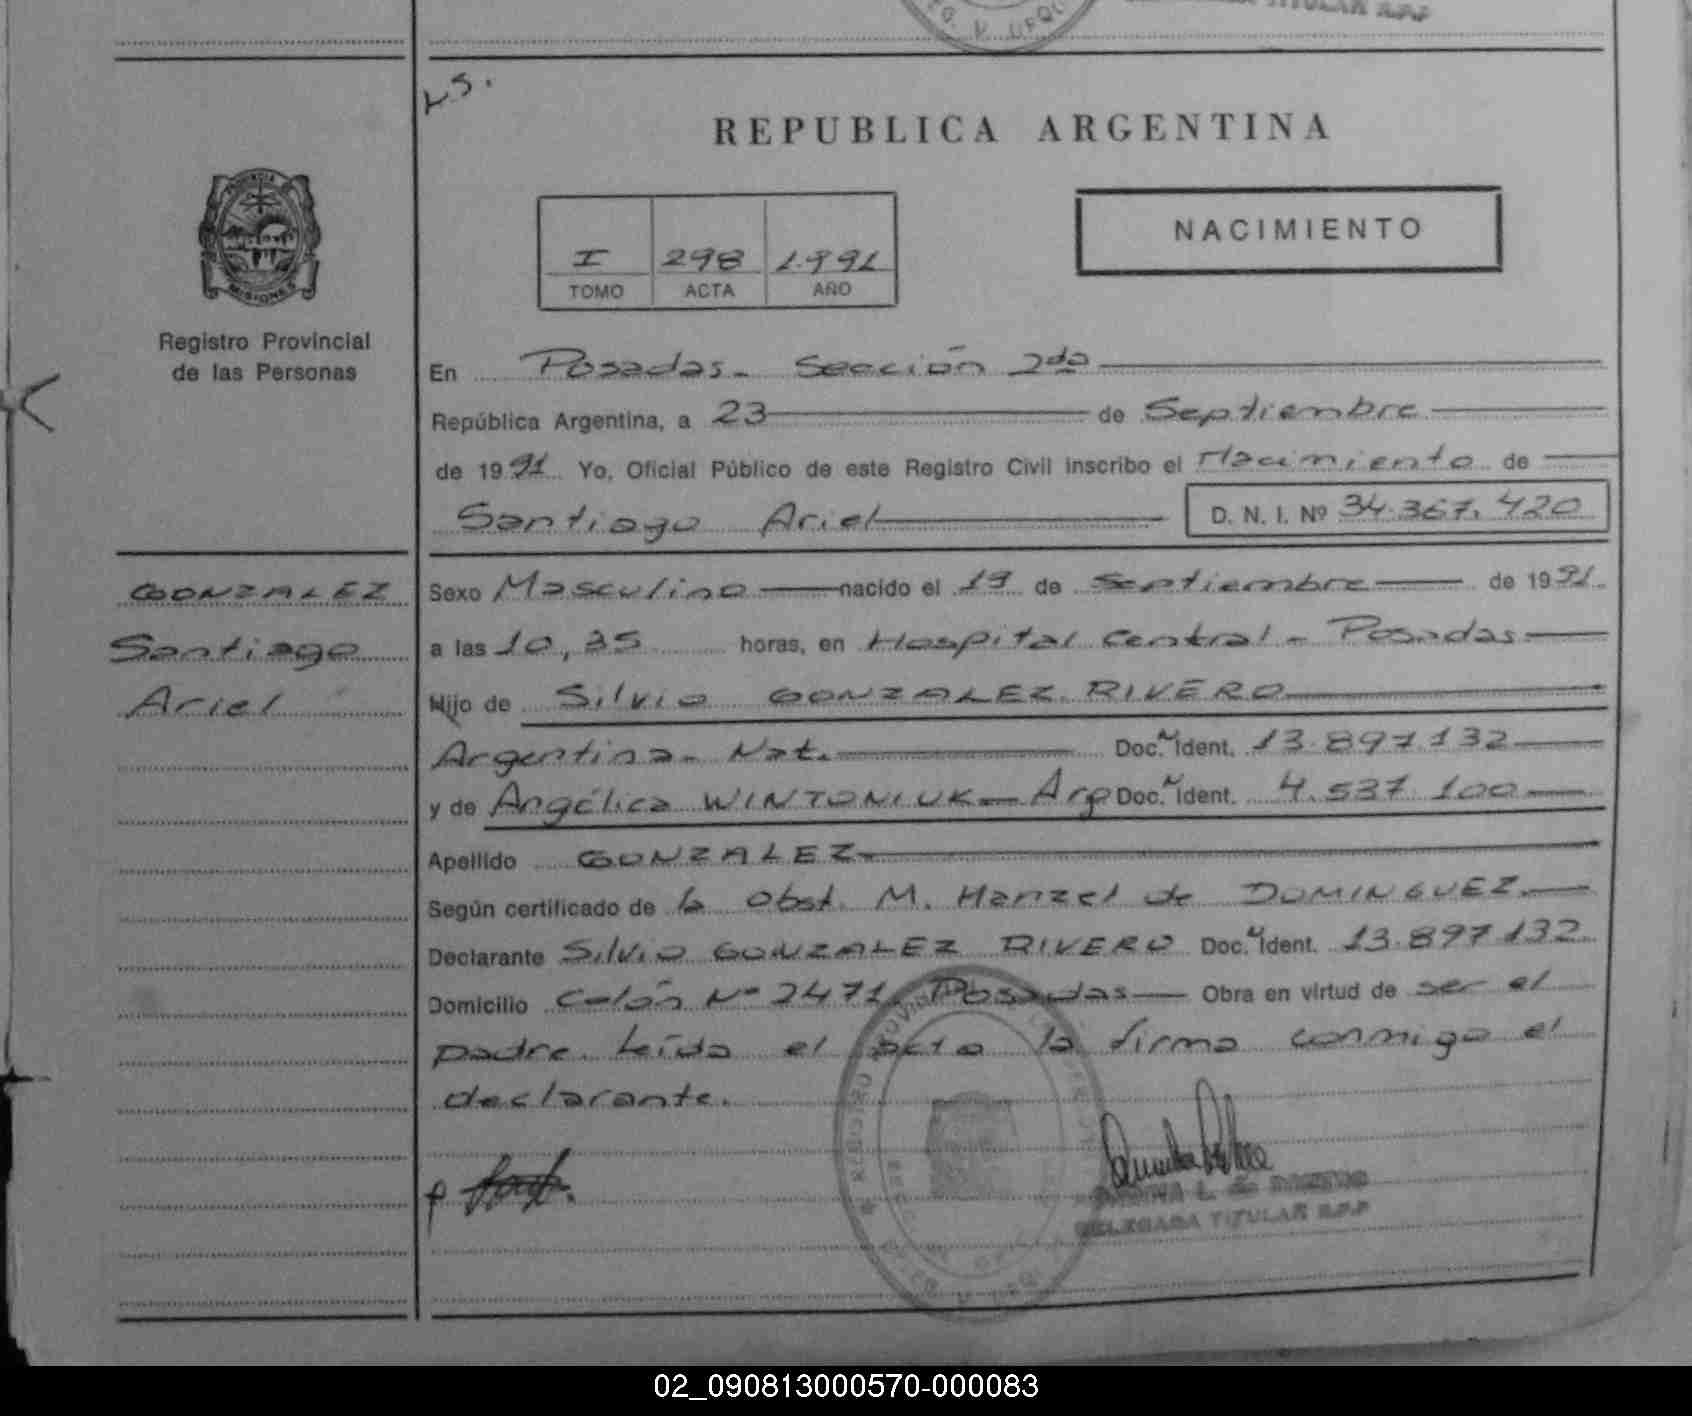 TITULAR R.P.P
L.S.
REPUBLICA ARGENTINA
PROVINCIA
MISIONES
Registro Provincial
de las Personas
I 298 1.991
TOMO ACTA AÑO
NACIMIENTO
En Posadas - Sección 2da
República Argentina, a 23 de Septiembre
de 1991 Yo, Oficial Público de este Registro Civil inscribo el Nacimiento de
Santiago Ariel D. N. I. Nº 34.367.420
GONZALEZ
Santiago
Ariel
Sexo Masculino nacido el 19 de Septiembre de 1991.
a las 10,35 horas, en Hospital Central - Posadas
Hijo de Silvio GONZALEZ RIVERO
Argentina - Nat. Doc. Ident. 13.897.132
y de Angélica WINTONIUK - Arg Doc. Ident. 4.537.100
Apellido GONZALEZ
Según certificado de la Obst. M. Hanzel de DOMINGUEZ.
Declarante Silvio GONZALEZ RIVERO Doc. Ident. 13.897.132
Domicilio Colón Nº 2471. Posadas Obra en virtud de ser el
padre. Leída el acta la firma conmigo el
declarante.
DELEGADA TITULAR R.P.P
02_090813000570-000083